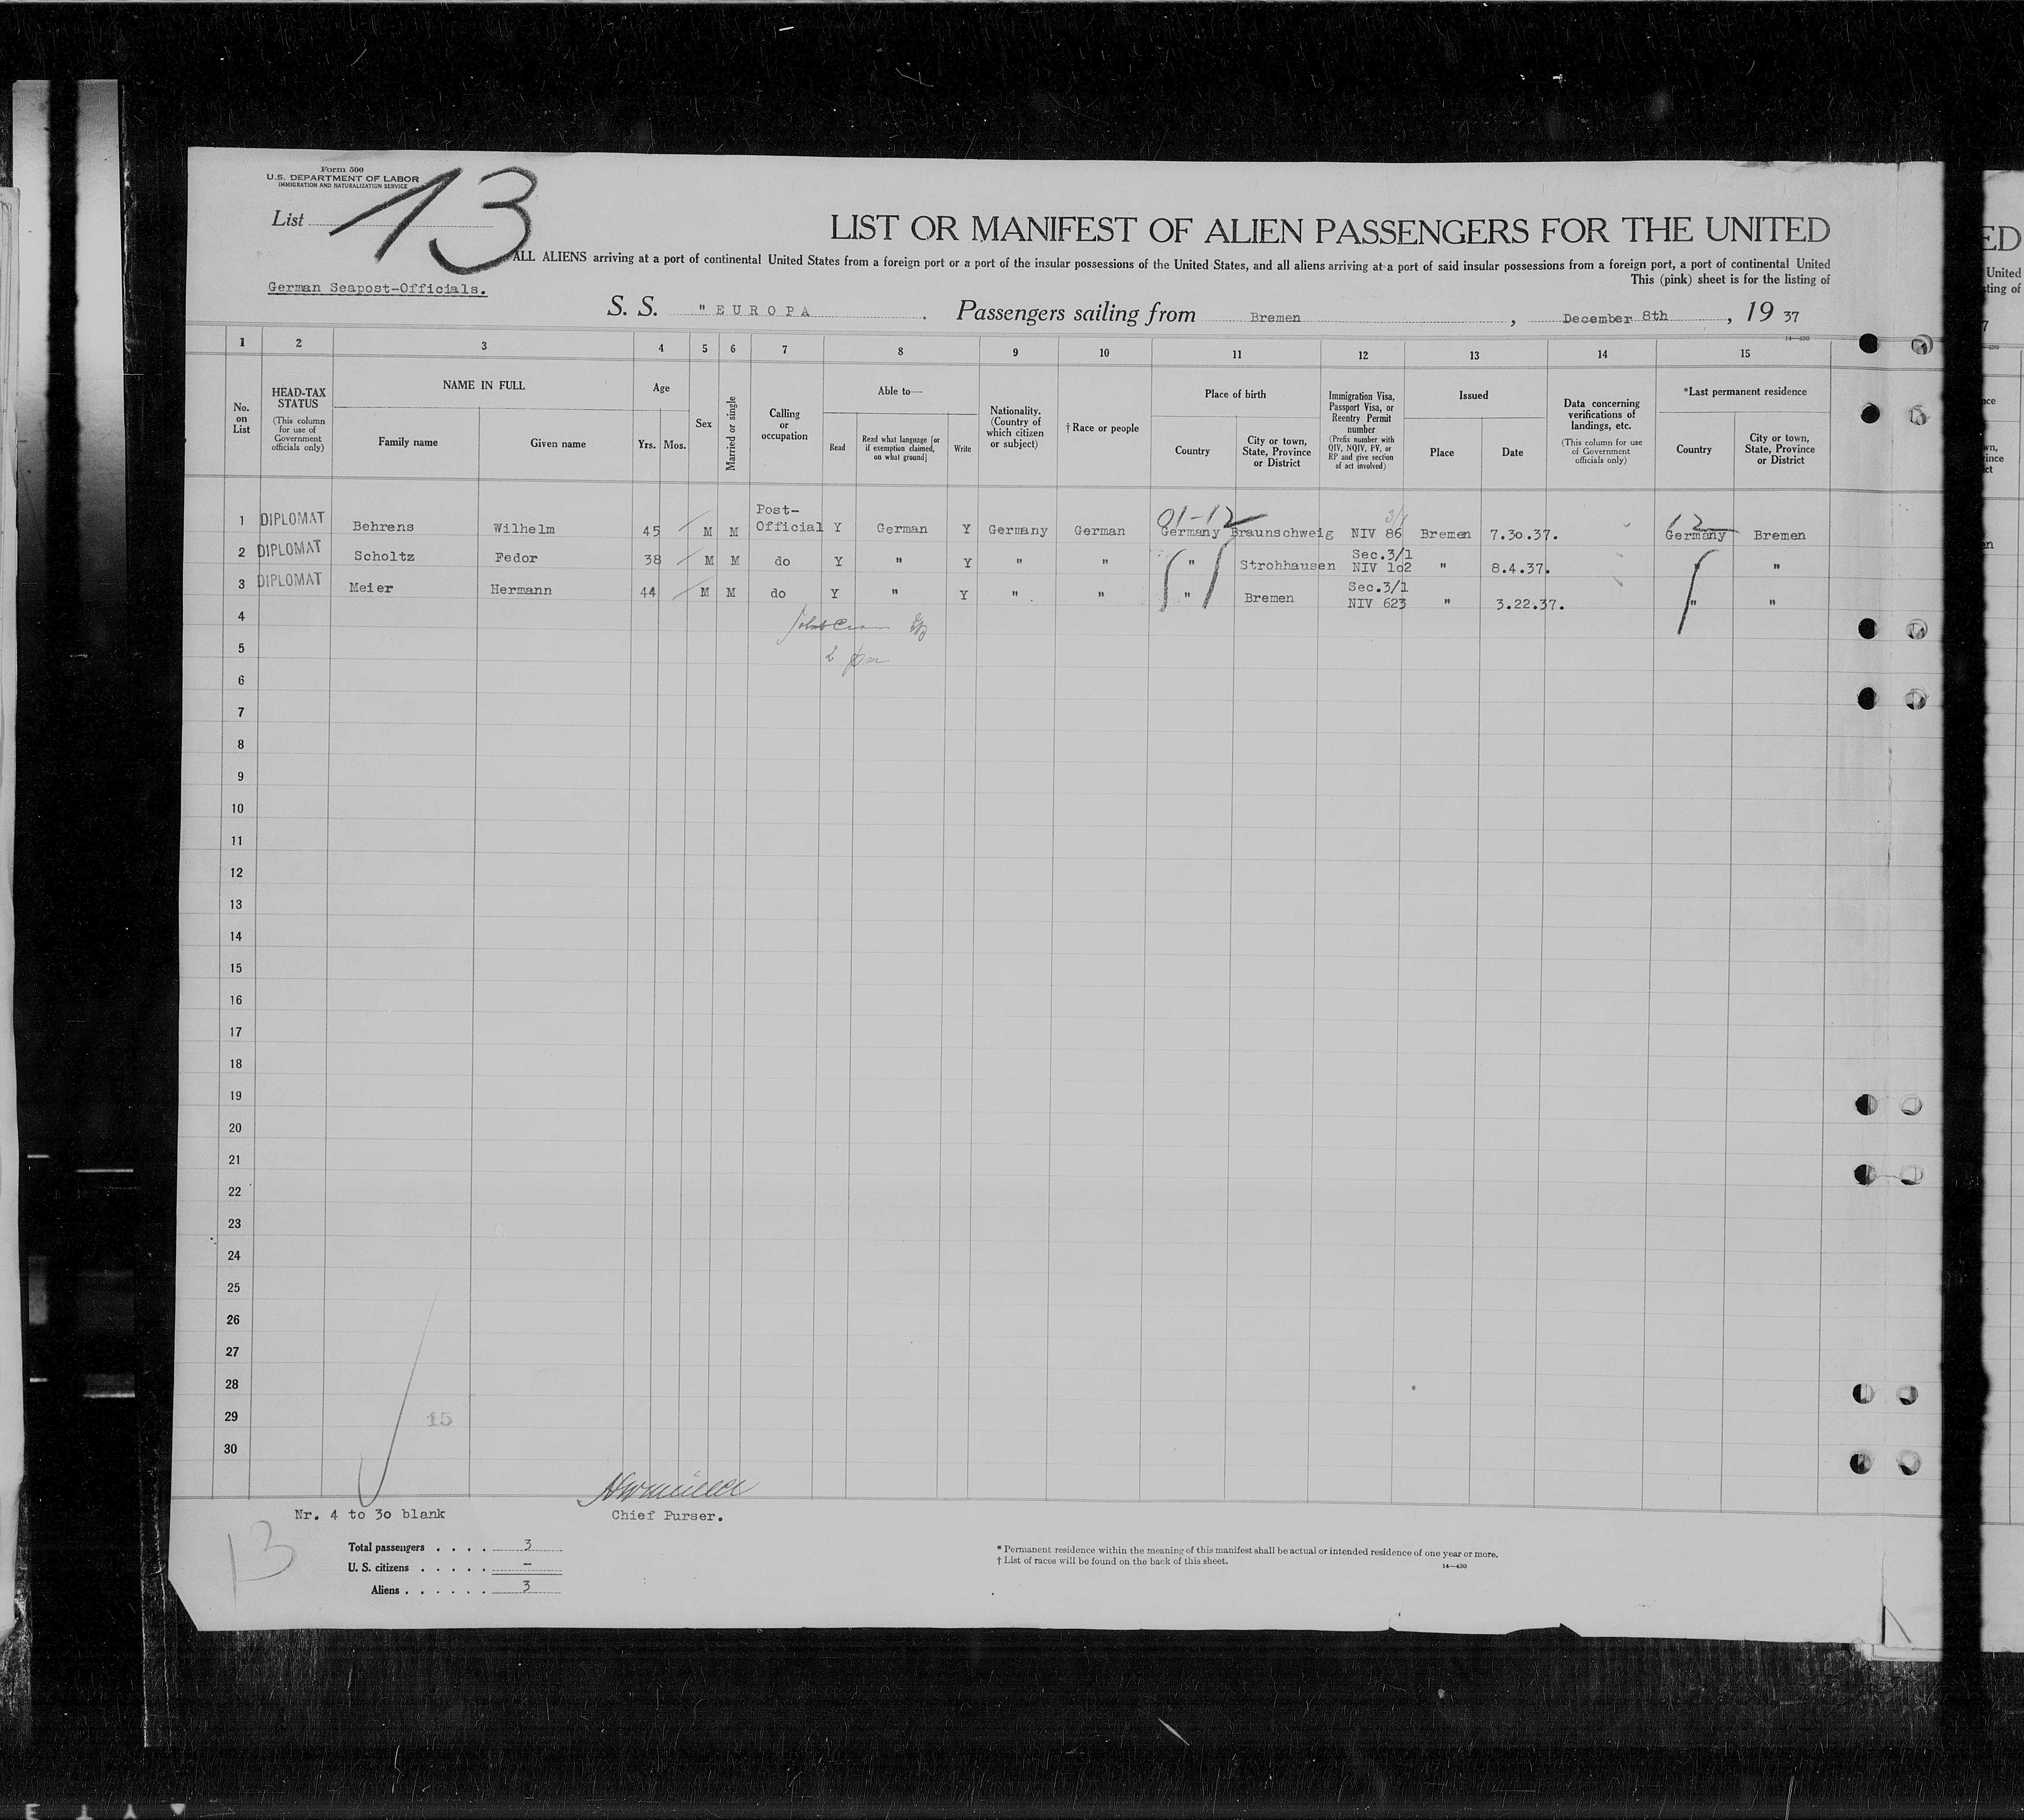 Form 500
U.S. DEPARTMENT OF LABOR
IMMIGRATION AND NATURALIZATION SERVICE
List 13
LIST OR MANIFEST OF ALIEN PASSENGERS FOR THE UNITED
ALL ALIENS arriving at a port of continental United States from a foreign port or a port of the insular possessions of the United States, and all aliens arriving at a port of said insular possessions from a foreign port, a port of continental United
This (pink) sheet is for the listing of
German Seapost-Officials.
S. S. "EUROPA . Passengers sailing from Bremen , December 8th , 19 37
14-430
1 2 3 4 5 6 7 8 9 10 11 12 13 14 15
No. on List
HEAD-TAX STATUS
(This column for use of Government officials only)
NAME IN FULL
Family name Given name
Age
Yrs. Mos.
Sex
Married or single
Calling or occupation
Able to—
Read
Read what language [or if exemption claimed, on what ground]
Write
Nationality. (Country of which citizen or subject)
†Race or people
Place of birth
Country
City or town, State, Province or District
Immigration Visa, Passport Visa, or Reentry Permit number
(Prefix number with QIV, NQIV, PV, or RP and give section of act involved)
Issued
Place Date
Data concerning verifications of landings, etc.
(This column for use of Government officials only)
*Last permanent residence
Country
City or town, State, Province or District
01-12 3/1 12
1 DIPLOMAT Behrens Wilhelm 45 M M Post-Official Y German Y Germany German Germany Braunschweig NIV 86 Bremen 7.30.37. Germany Bremen
2 DIPLOMAT Scholtz Fedor 38 M M do Y " Y " " " Strohhausen Sec.3/1 NIV 102 " 8.4.37. "
3 DIPLOMAT Meier Hermann 44 M M do Y " Y " " " Bremen Sec.3/1 NIV 623 " 3.22.37. " "
4
5
6
7
8
9
10
11
12
13
14
15
16
17
18
19
20
21
22
23
24
25
26
27
28
29 15
30
Nr. 4 to 30 blank
Chief Purser.
13
Total passengers . . . . 3
U. S. citizens . . . . . –
Aliens . . . . . . 3
* Permanent residence within the meaning of this manifest shall be actual or intended residence of one year or more.
† List of races will be found on the back of this sheet.
14-430